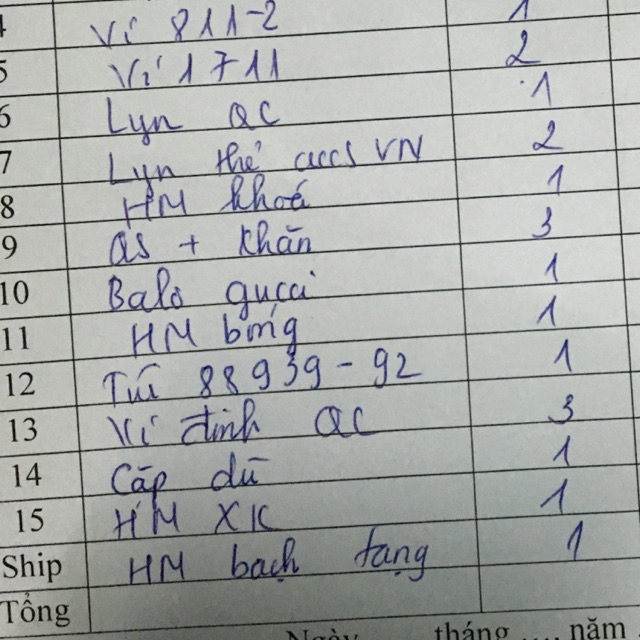 4 Ví 811-2 1
5 Ví 1711 2
6 Lyn QC 1
7 Lyn thẻ cucs VN 2
8 HM khoá 1
9 QS + Khăn 3
10 Balo gucci 1
11 HM bóng 1
12 Túi 88939-92 1
13 Ví đinh QC 3
14 Cặp dù 1
15 HM XK 1
Ship HM bạch tạng 1
Tổng
Ngày tháng.... năm